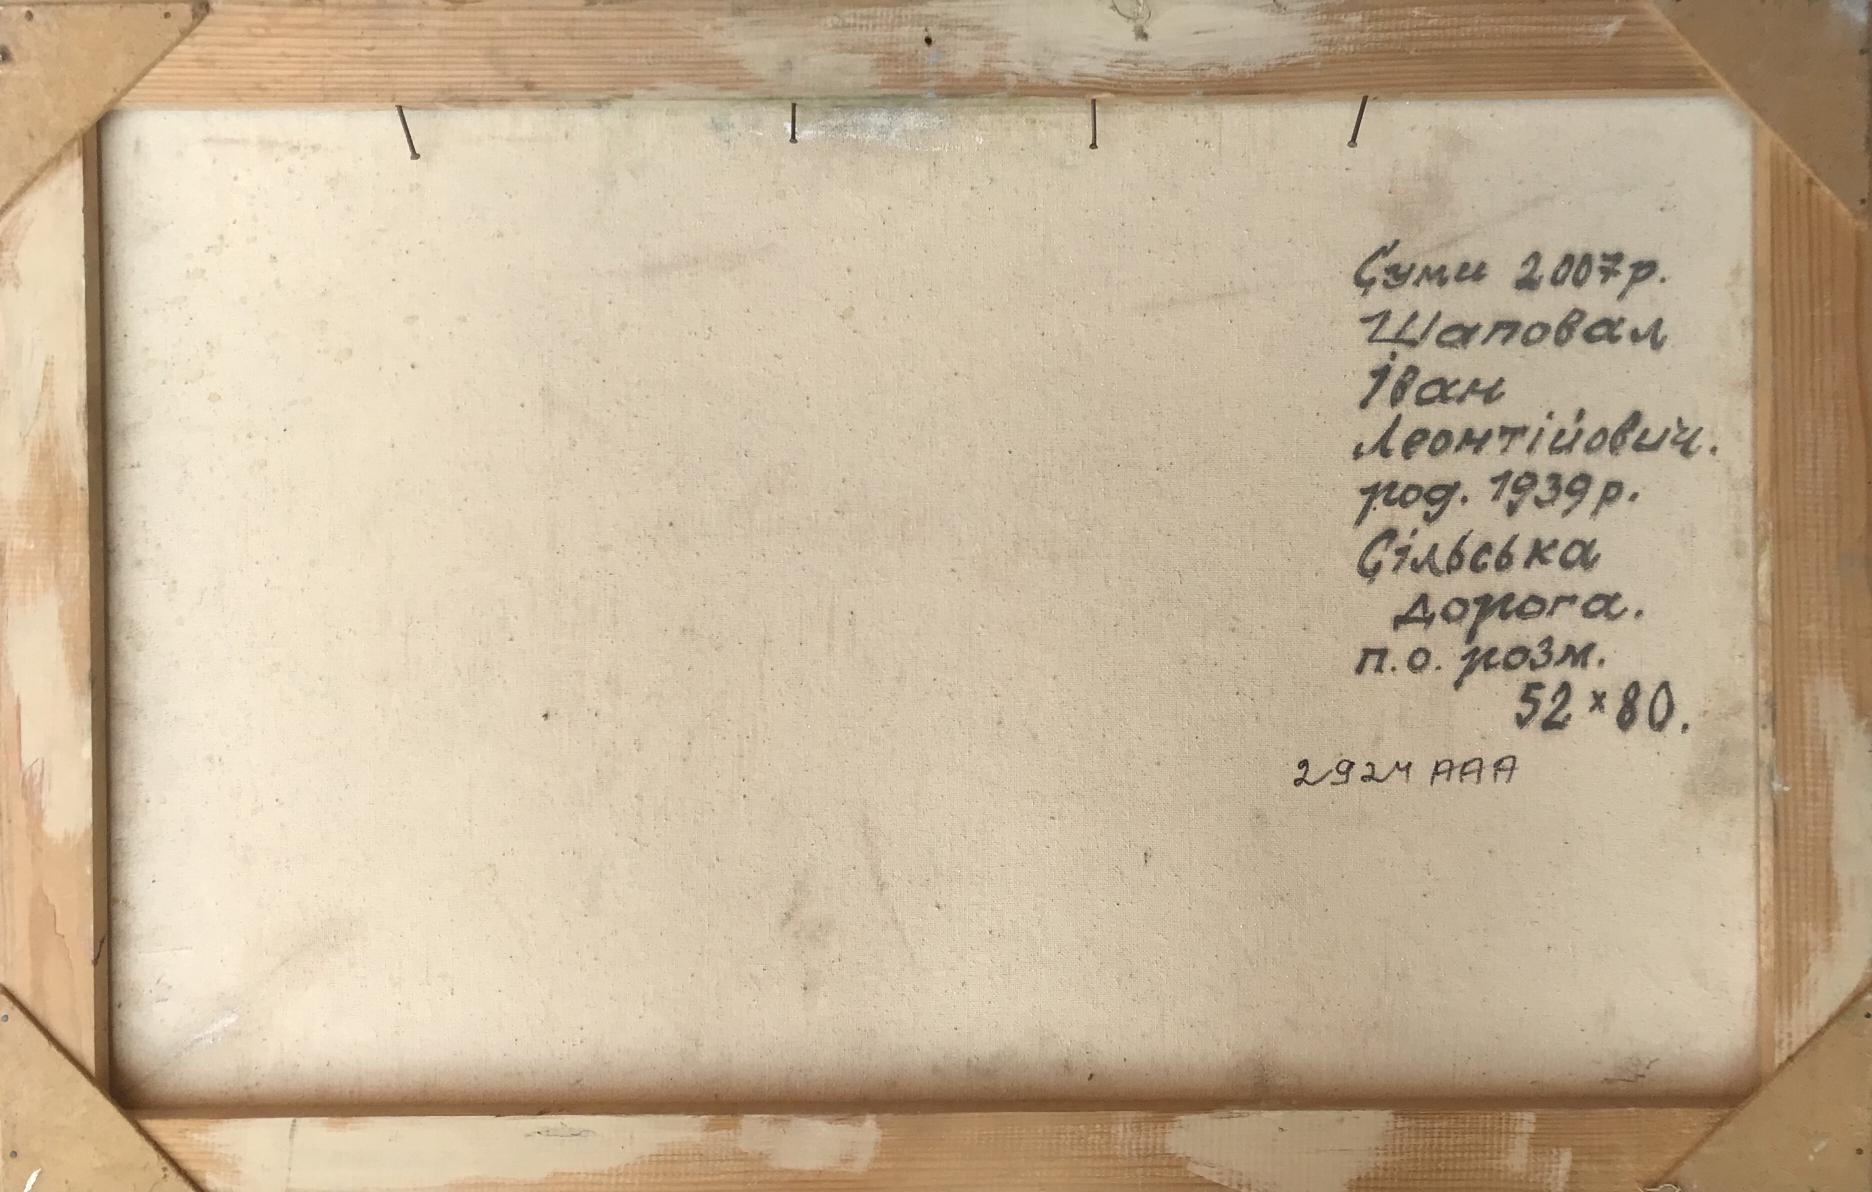 Суми 2007р.
Шаповал
Іван
Леонтійович.
род. 1939р.
Сільська
дорога.
п.о. розм.
52×80.
2924 AAA